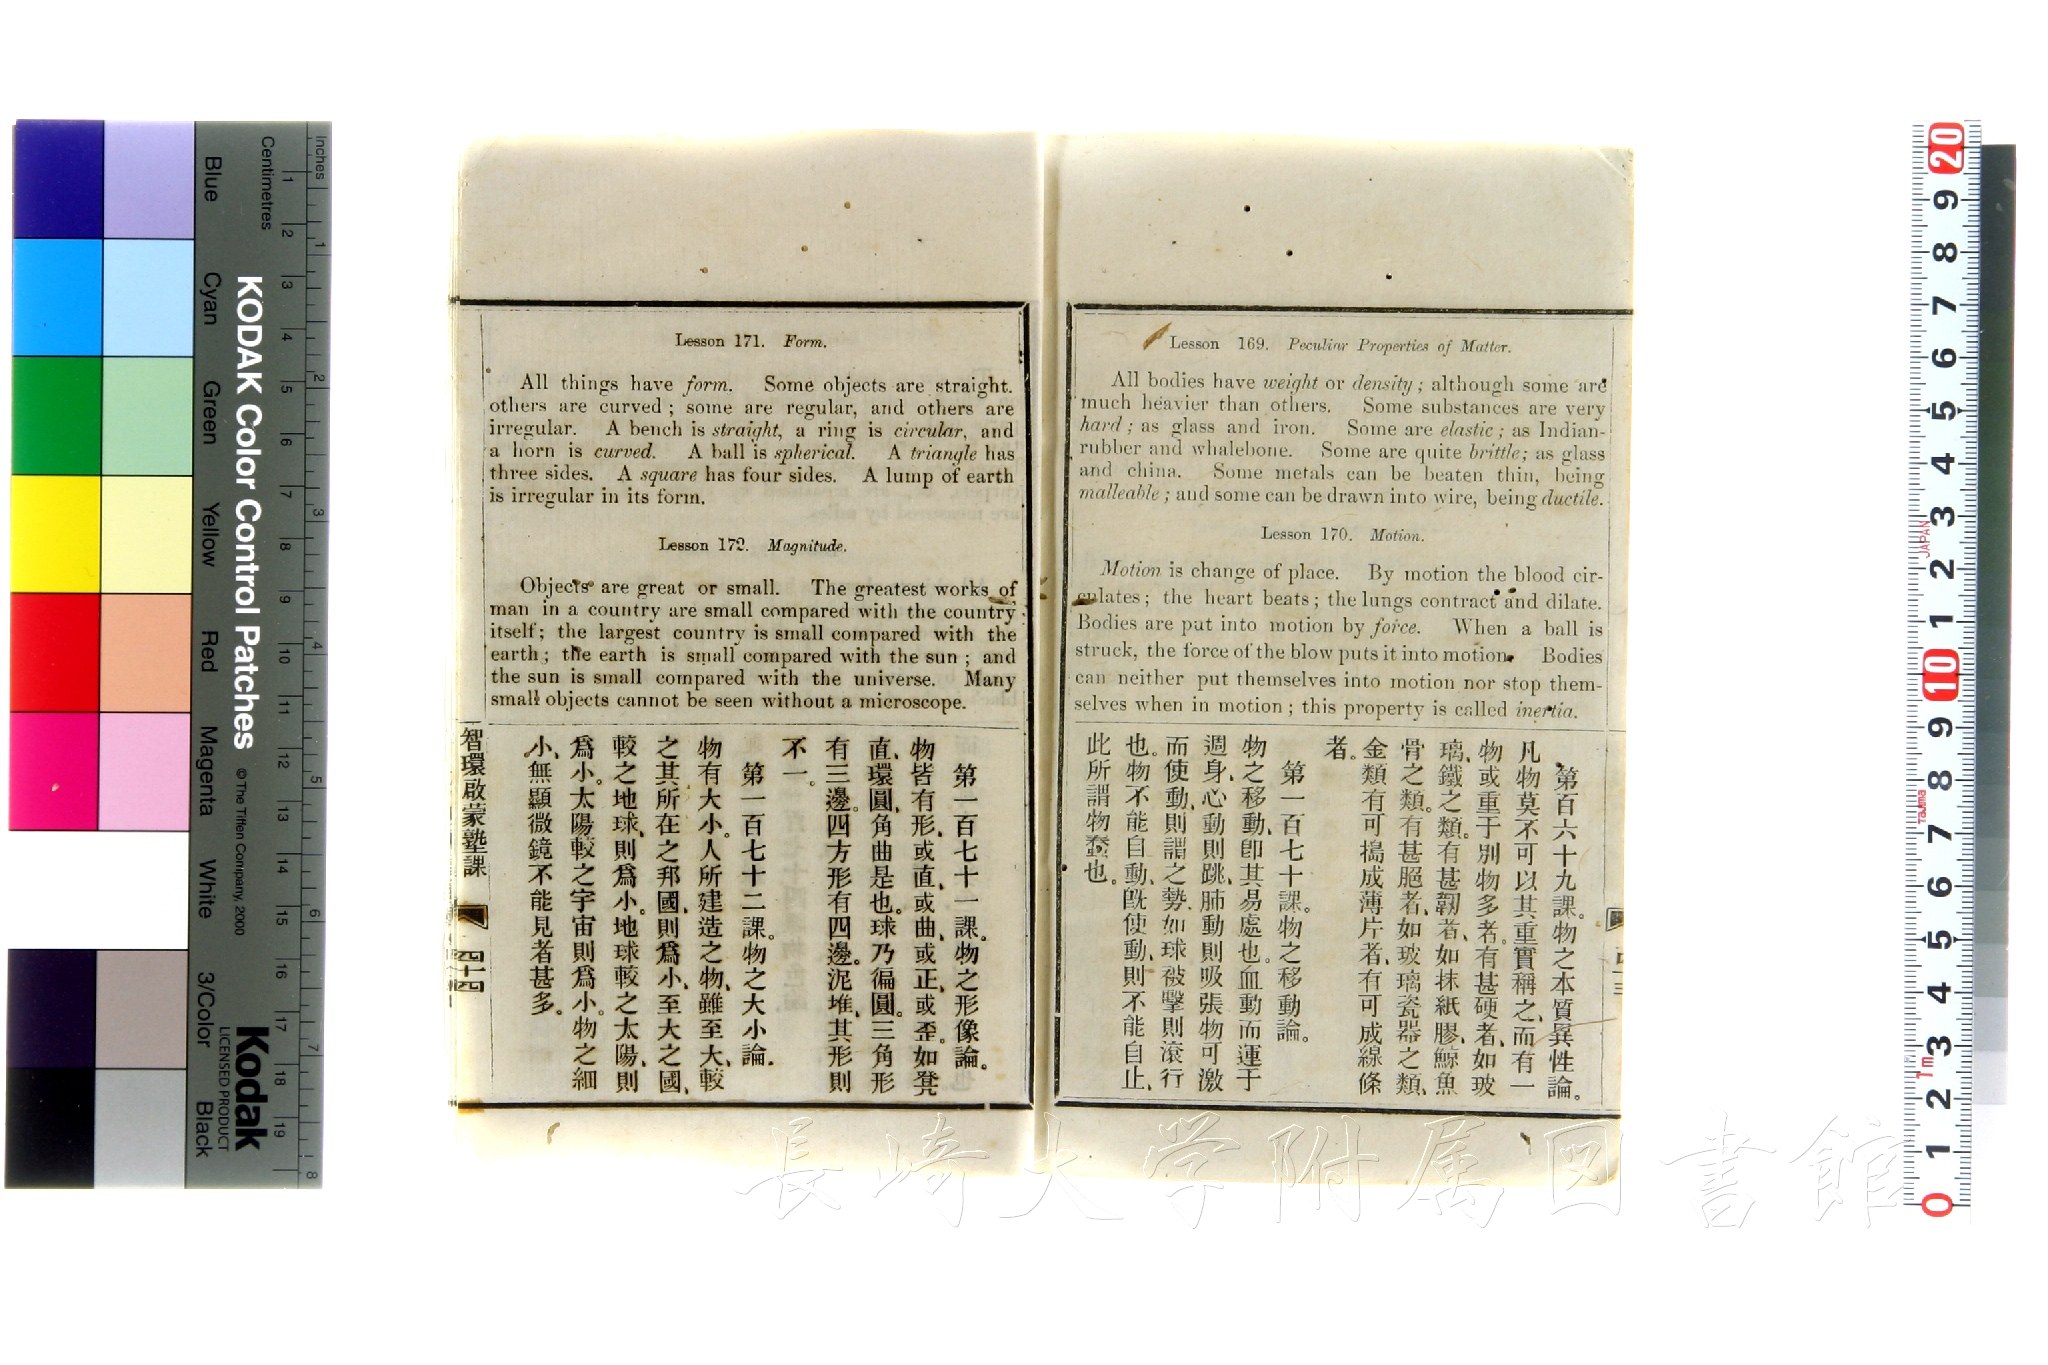 Lesson 169. Peculiar Properties of Matter.
All bodies have weight or density; although some are
much heavier than others. Some substances are very
hard; as glass and iron. Some are elastic; as Indian-
rubber and whalebone. Some are quite brittle; as glass
and china. Some metals can be beaten thin, being
malleable; and some can be drawn into wire, being ductile.
Lesson 170. Motion.
Motion is change of place. By motion the blood cir-
culates; the heart beats; the lungs contract and dilate.
Bodies are put into motion by force. When a ball is
struck, the force of the blow puts it into motion. Bodies
can neither put themselves into motion nor stop them-
selves when in motion; this property is called inertia.
第百六十九課。物之本質異性論。
凡物莫不可以其重實稱之、而有一
物或重于別物多者。有甚硬者、如玻
璃、鐵之類。有甚韌者、如抹紙膠、鯨魚
骨之類。有甚脆者、如玻璃瓷器之類、
金類有可搗成薄片者、有可成線條
者。
第一百七十課。物之移動論。
物之移動、卽其易處也。血動而運于
週身、心動則跳、肺動則吸張物可激
而使動、則謂之勢、如球被擊則滾行
也。物不能自動、旣使動、則不能自止、
此所謂物蠢也。
Lesson 171. Form.
All things have form. Some objects are straight.
others are curved; some are regular, and others are
irregular. A bench is straight, a ring is circular, and
a horn is curved. A ball is spherical. A triangle has
three sides. A square has four sides. A lump of earth
is irregular in its form.
Lesson 172. Magnitude.
Objects are great or small. The greatest works of
man in a country are small compared with the country
itself; the largest country is small compared with the
earth; the earth is small compared with the sun; and
the sun is small compared with the universe. Many
small objects cannot be seen without a microscope.
第一百七十一課。物之形像論。
物皆有形、或直、或曲、或正、或歪。如凳
直、環圓、角曲是也。球乃徧圓。三角形
有三邊。四方形有四邊。泥堆、其形則
不一。
第一百七十二課。物之大小論。
物有大小。人所建造之物、雖至大、較
之其所在之邦國、則爲小、至大之國、
較之地球、則爲小。地球較之太陽、則
爲小。太陽較之宇宙則爲小。物之細
小、無顯微鏡不能見者甚多。
智環啟蒙塾課
四十四
KODAK Color Control Patches
© The Tiffen Company, 2000
Kodak
LICENSED PRODUCT
Inches
Centimetres
1 2 3 4 5 6 7 8 9 10 11 12 13 14 15 16 17 18 19
1 2 3 4 5 6 7 8
Blue Cyan Green Yellow Red Magenta White 3/Color Black
20 9 8 7 6 5 4 3 2 1 10 9 8 7 6 5 4 3 2 1 0
JAPAN
Tajima
1m
長崎大学附属図書館